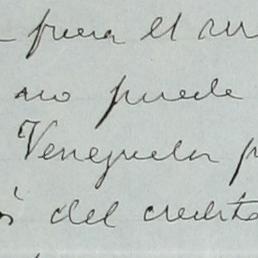 fuera el
no puede
Venezuela
del credito